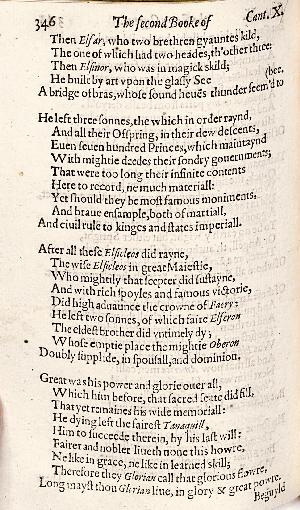 346 The second Booke of Cant. X.
Then Elfar, who two brethren gyauntes kild,
The one of which had two heades, th'other three:
Then Elfinor, who was in magick skild;
He built by art vpon the glassy See (bee.
A bridge of bras, whose sound heuēs thunder seem'd to
He left three sonnes, the which in order raynd,
And all their Ofspring, in their dew descents,
Euen seuen hundred Princes, which maintaynd
With mightie deedes their sondry gouernments;
That were too long their infinite contents
Here to record, ne much materiall:
Yet should they be most famous moniments,
And braue ensample, both of martiall,
And ciuil rule to kinges and states imperiall.
After all these Elficleos did rayne,
The wise Elficleos in great Maiestie,
Who mightily that scepter did sustayne,
And with rich spoyles and famous victorie,
Did high aduaunce the crowne of Faery:
He left two sonnes, of which faire Elferon
The eldest brother did vntimely dy;
Whose emptie place the mightie Oberon
Doubly supplide, in spousall, and dominion.
Great was his power and glorie ouer all,
Which him before, that sacred seate did fill,
That yet remaines his wide memoriall:
He dying left the fairest Tanaquill,
Him to succeede therein, by his last will:
Fairer and nobler liueth none this howre,
Ne like in grace, ne like in learned skill;
Therefore they Glorian call that glorious flowre,
Long mayst thou Glorian liue, in glory & great powre.
Beguyld